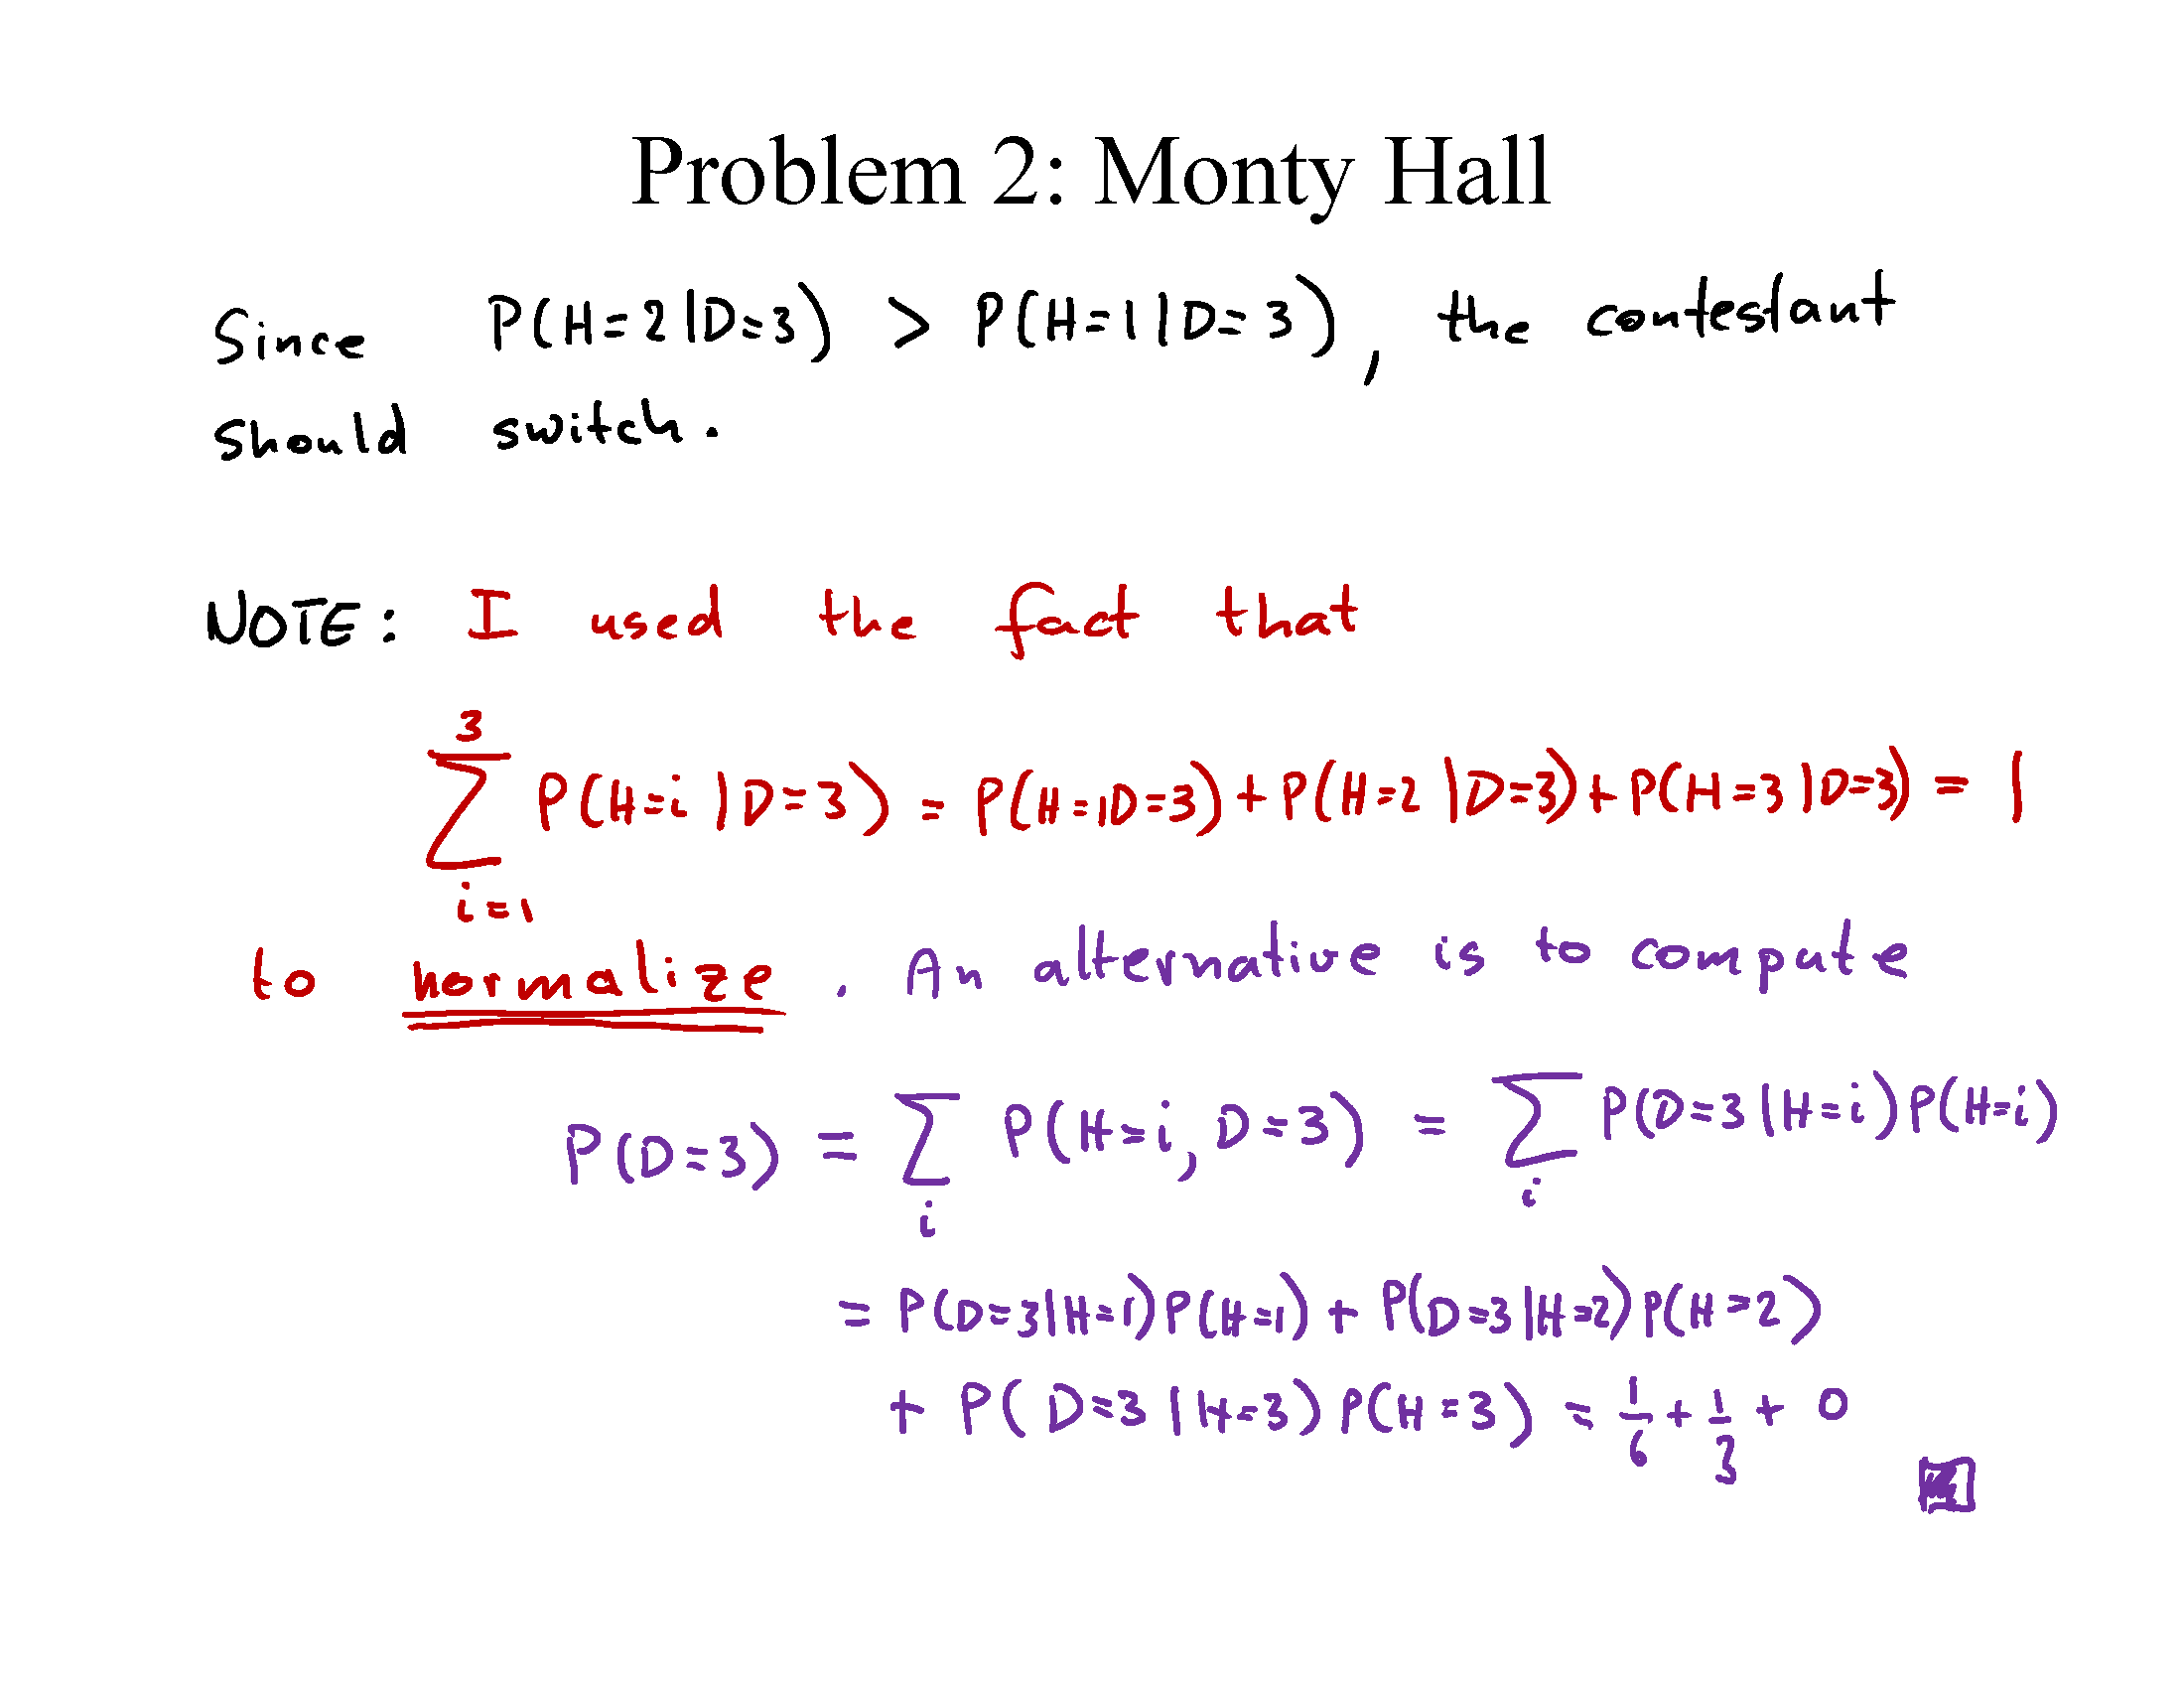 Problem 2: Monty Hall
Since P(H=2|D=3) > P(H=1|D=3), the contestant
should switch.
NOTE: I used the fact that
3
∑ P(H=i|D=3) = P(H=1D=3)+P(H=2|D=3)+P(H=3|D=3) = 1
i=1
to normalize. An alternative is to compute
P(D=3) = ∑ P(H=i, D=3) = ∑ P(D=3|H=i)P(H=i)
i i
= P(D=3|H=1)P(H=1) + P(D=3|H=2)P(H=2)
+ P(D=3|H=3)P(H=3) = 1/6 + 1/3 + 0